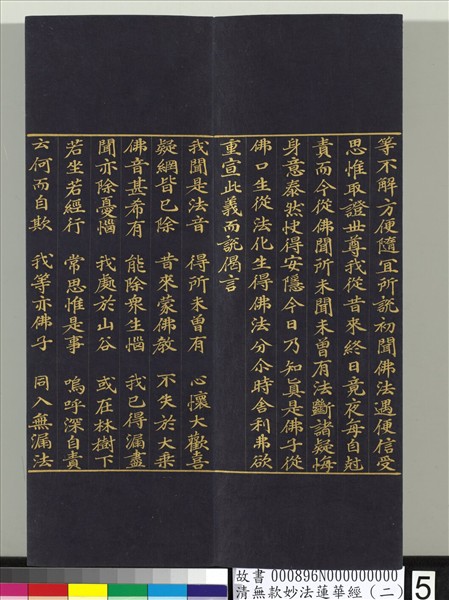 等不解方便隨宜所說初聞佛法遇便信受
思惟取證世尊我從昔來終日竟夜每自尅
責而今從佛聞所未聞未曾有法斷諸疑悔
身意泰然快得安隱今日乃知真是佛子從
佛口生從法化生得佛法分尒時舍利弗欲
重宣此義而說偈言
我聞是法音 得所未曾有 心懷大歡喜
疑網皆已除 昔來蒙佛教 不失於大乘
佛音甚希有 能除衆生惱 我已得漏盡
聞亦除憂惱 我處於山谷 或在林樹下
若坐若經行 常思惟是事 嗚呼深自責
云何而自欺 我等亦佛子 同入無漏法
故書 000896N000000000
清無款妙法蓮華經(二)
5